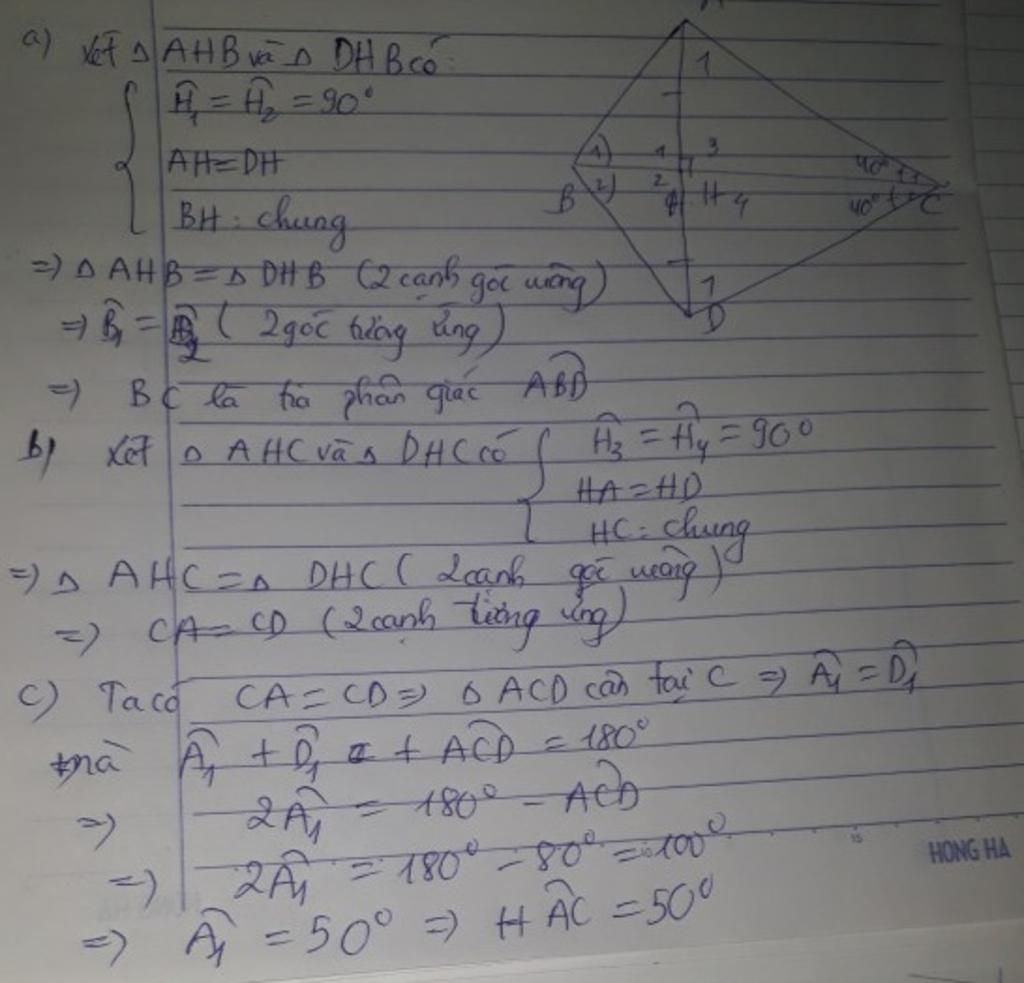 a) Xét Δ AHB và Δ DHB có:
Ĥ₁ = Ĥ₂ = 90°
AH = DH
BH : chung
=> Δ AHB = Δ DHB (2 cạnh góc vuông)
=> B̂₁ = B̂₂ ( 2 góc tương ứng)
=> BC là tia phân giác ABD
b) Xét Δ AHC và Δ DHC có Ĥ₃ = Ĥ₄ = 90°
HA = HD
HC : chung
=> Δ AHC = Δ DHC ( 2 cạnh góc vuông)
=> CA = CD (2 cạnh tương ứng)
c) Ta có CA = CD => Δ ACD cân tại C => Â₁ = D̂₁
mà Â₁ + D̂₁ + ACD = 180°
=> 2Â₁ = 180° - ACD
=> 2Â₁ = 180° - 80° = 100°
=> Â₁ = 50° => HÂC = 50°
1
1 1 3 40°
B 2 2 H 4 40° C
1
D
15
HONG HA